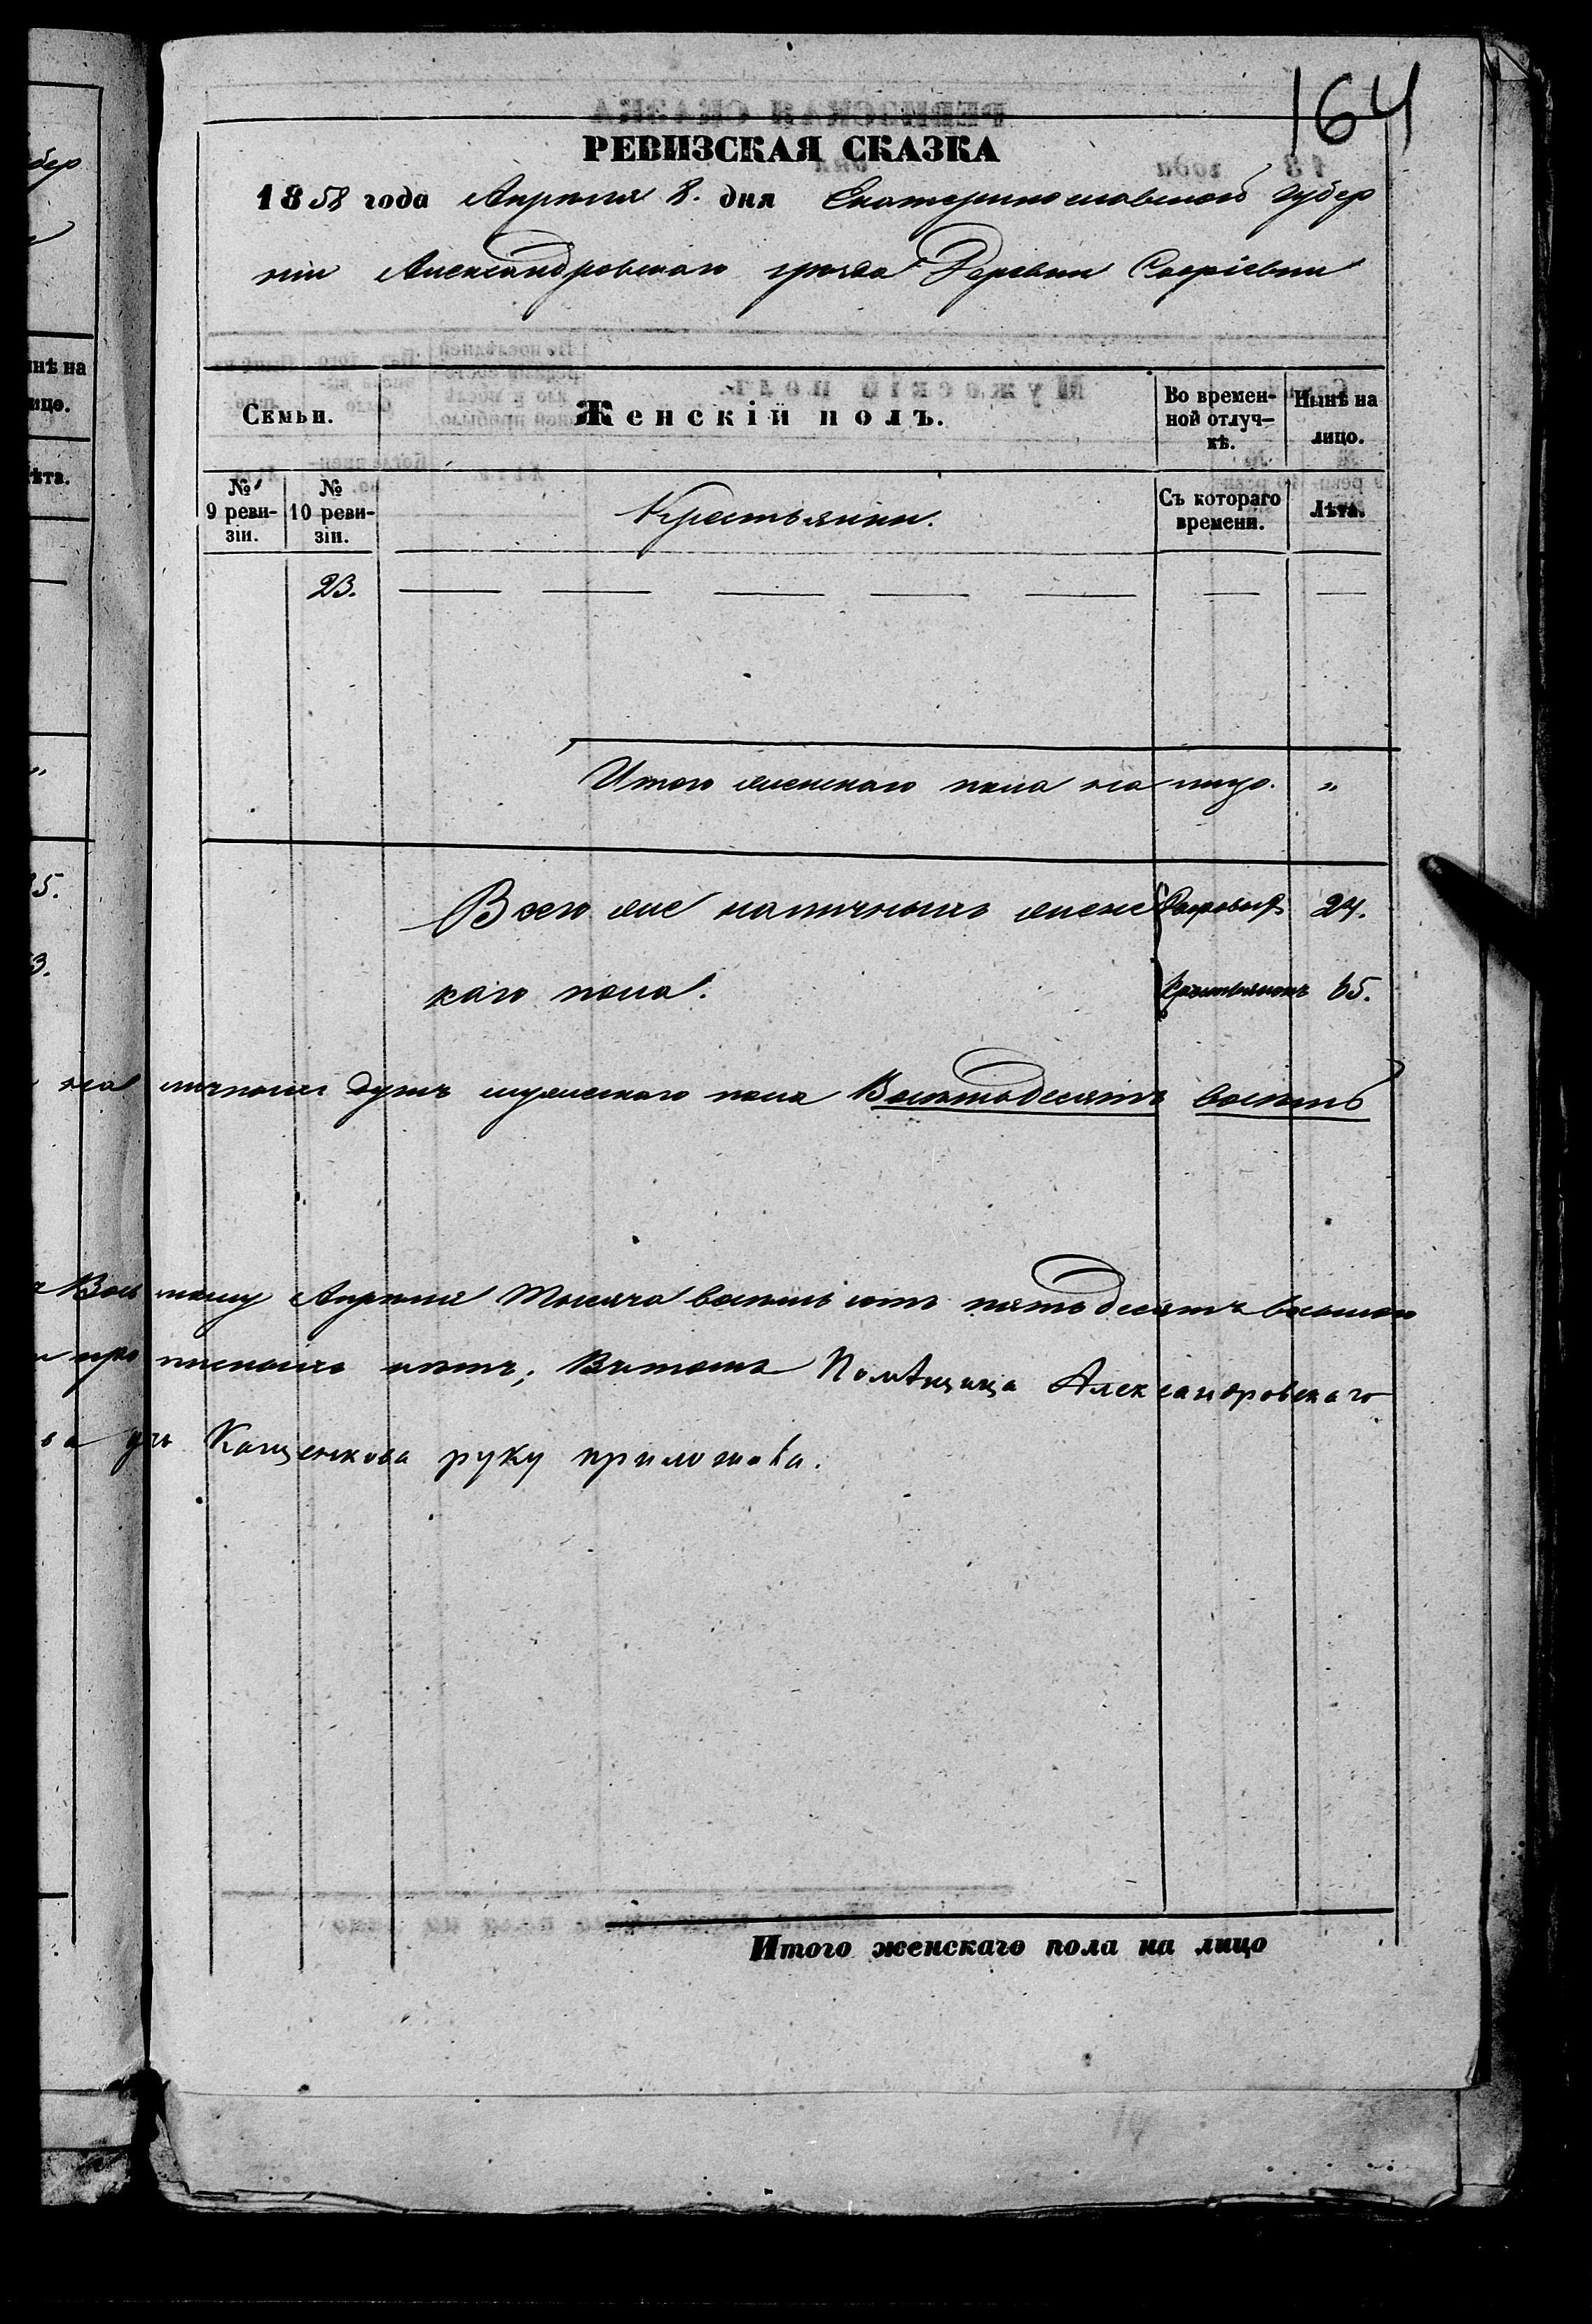 164
РЕВИЗСКАЯ СКАЗКА
1858 года Апрѣля 8. дня Екатеринославской губер
ніи Александровскаго уѣзда Деревни Софіевки
Семьи.
Женскій полъ.
Во времен-
ной отлуч-
кѣ.
Нынѣ на
лицо.
№
9 реви-
зіи.
№
10 реви-
зіи.
Крестьянки.
Съ котораго
времени.
Лѣта.
23.
Итого женскаго пола на лицо. „
Всего же наличныхъ женс Дворовыхъ 24.
каго пола. Крестьянокъ 65.
на личныхъ душъ мужескаго пола Восемьдесятъ восемь
Вось мому Апрѣля Тысяча восемь сотъ пятьдесятъ восьмого
про писныхъ нѣтъ; Въ томъ Помѣщица Александровскаго
Кащенкова руку приложила.
Итого женскаго пола на лицо
бер
нѣ на
ицо.
ѣта.
„
5.
3.